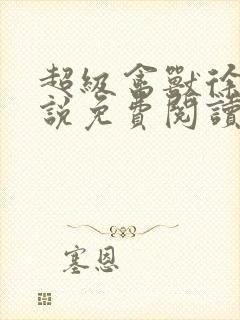 超級禽獸徐
說免費閱讀
塞恩